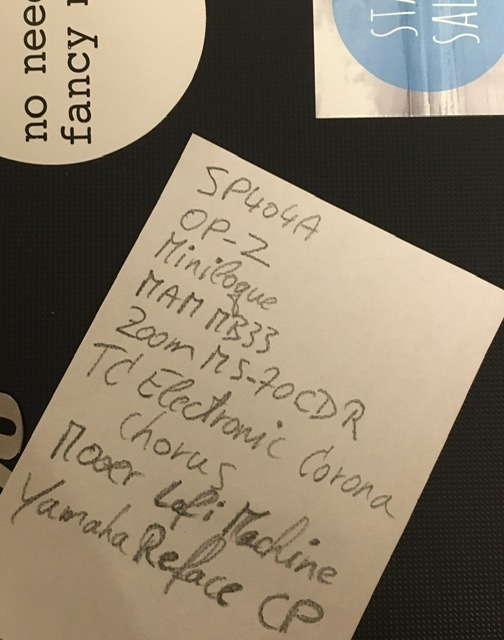 no nee
fancy
STA
SAL
SP404A
OP-Z
Minilogue
MAM MB33
Zoom MS-70CDR
TC Electronic Corona
Chorus
Mooer Lofi Machine
Yamaha Reface CP